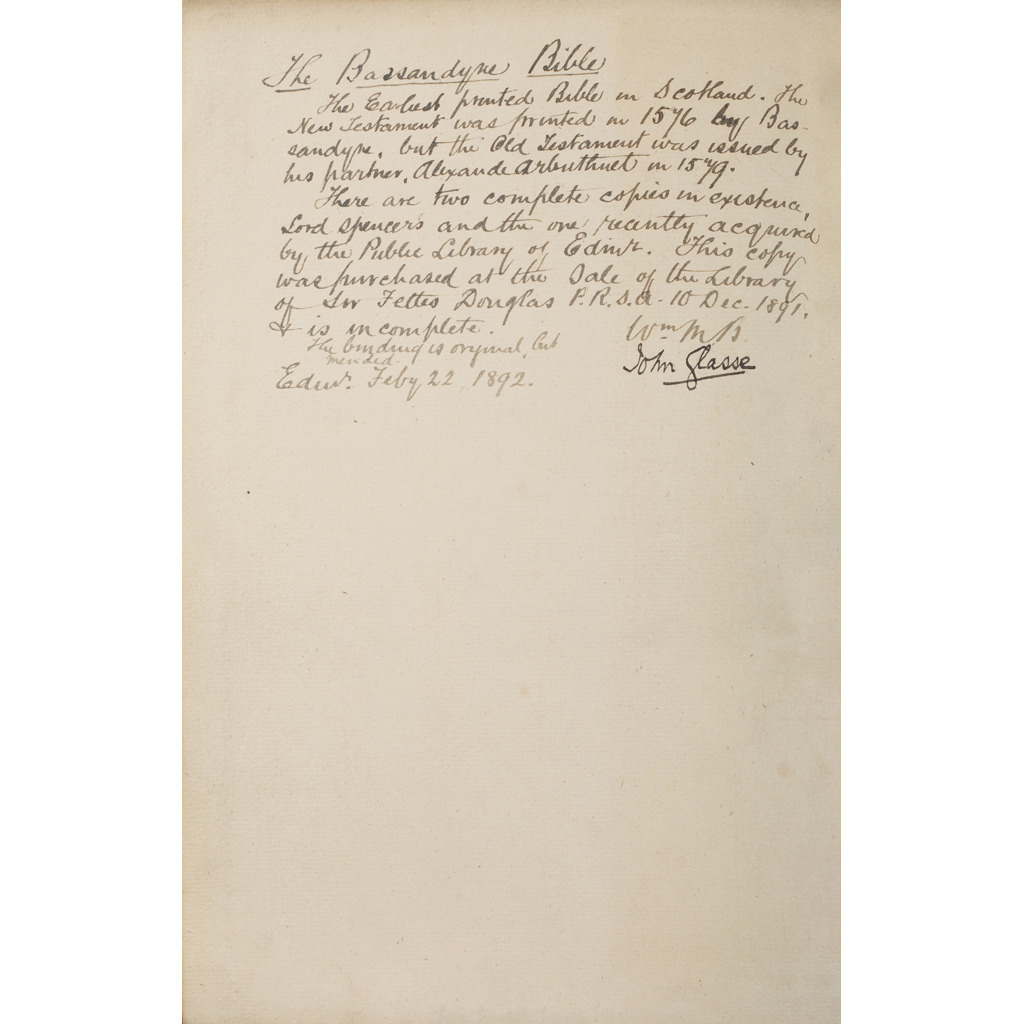 The Bassandyne Bible
The Earliest printed Bible in Scotland. The
New Testament was printed in 1576 by Bas-
sandyne, but the Old Testament was issued by
his partner, Alexande Arbuthnet in 1579.
There are two complete copies in existence,
Lord Spencer's and the one recently acquired
by the Public Library of Edinr. This copy
was purchased at the Sale of the Library
of Sir Fettes Douglas P.R.S.A. 10 Dec. 1891.
It is incomplete.
Wm M B.
The binding is original, but
mended.
John Glasse
Edinr. Feby 22 1892.